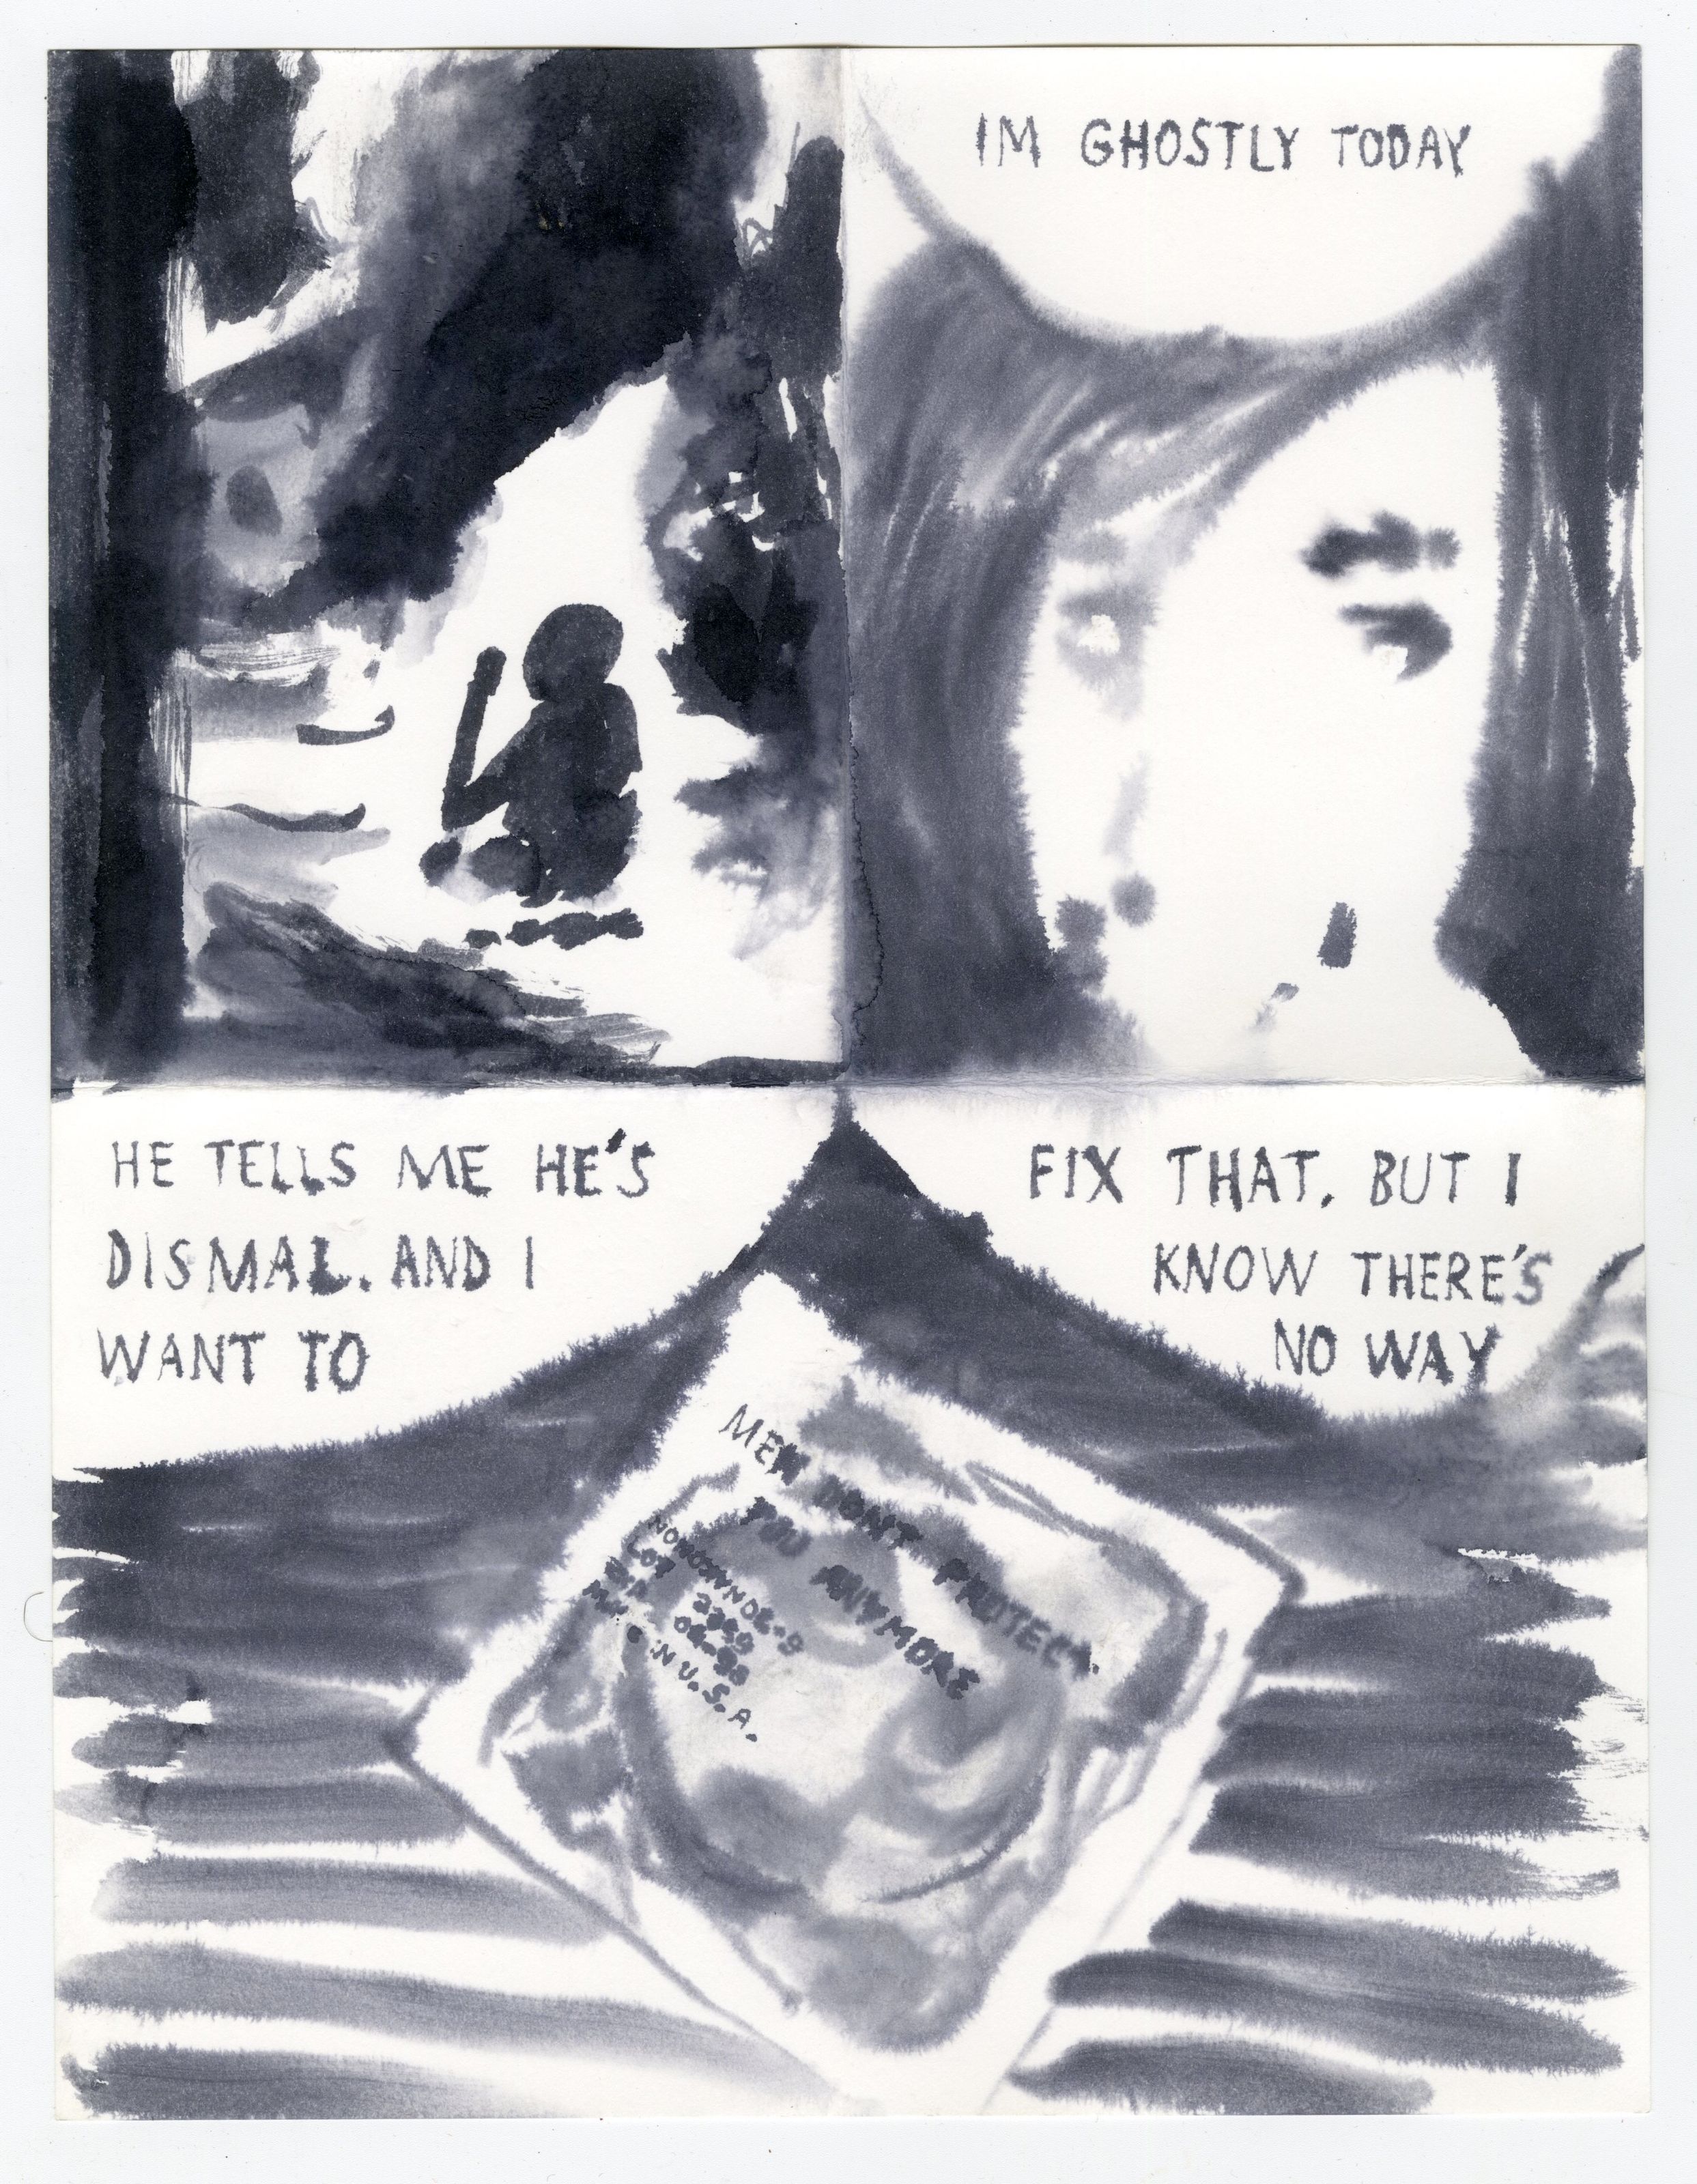 IM GHOSTLY TODAY
HE TELLS ME HE'S
DISMAL. AND I
WANT TO
FIX THAT. BUT I
KNOW THERE'S
NO WAY
MEN DON'T PROTECT
YOU ANYMORE
LOT 2359
EXP. 04-98
IN U.S.A.